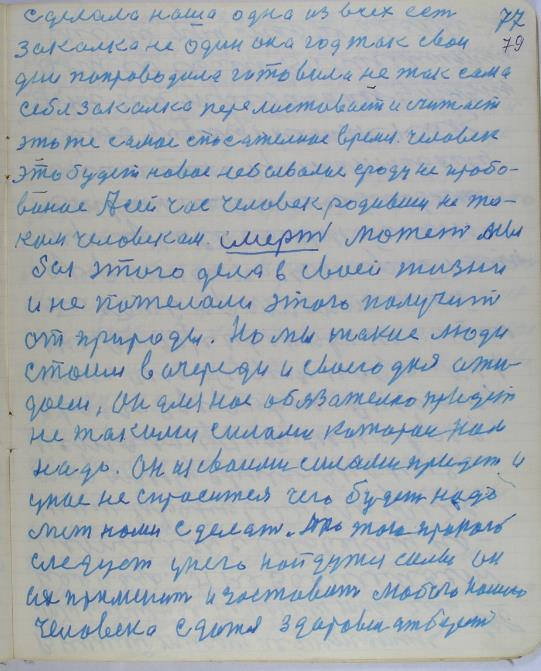 сделала наша одна из всех ест
77
закалка не один она год так свои
79
дни попроводила готовила не так сама
себя закалка перелистовает и считает
это же самое спасателное время. человек
это будет новое небывалое сроду не пробо-
ваное А сей час человек родивши не та-
ким человекам. смерт может мы
бы этого дела в своей жизни
и не пожелали этого получит
от природы. Но мы такие люди
стоим в очереди и своего дня ожи-
даем, он для нас обязателно придет
не такими силами которои нам
надо. Он из своими силами придет и
у нас не спросится чего будет надо
с нами сделат. того
следует у него найдутся силы он
их применит и заставит любого нашего
человека сдатся здоровия отберет